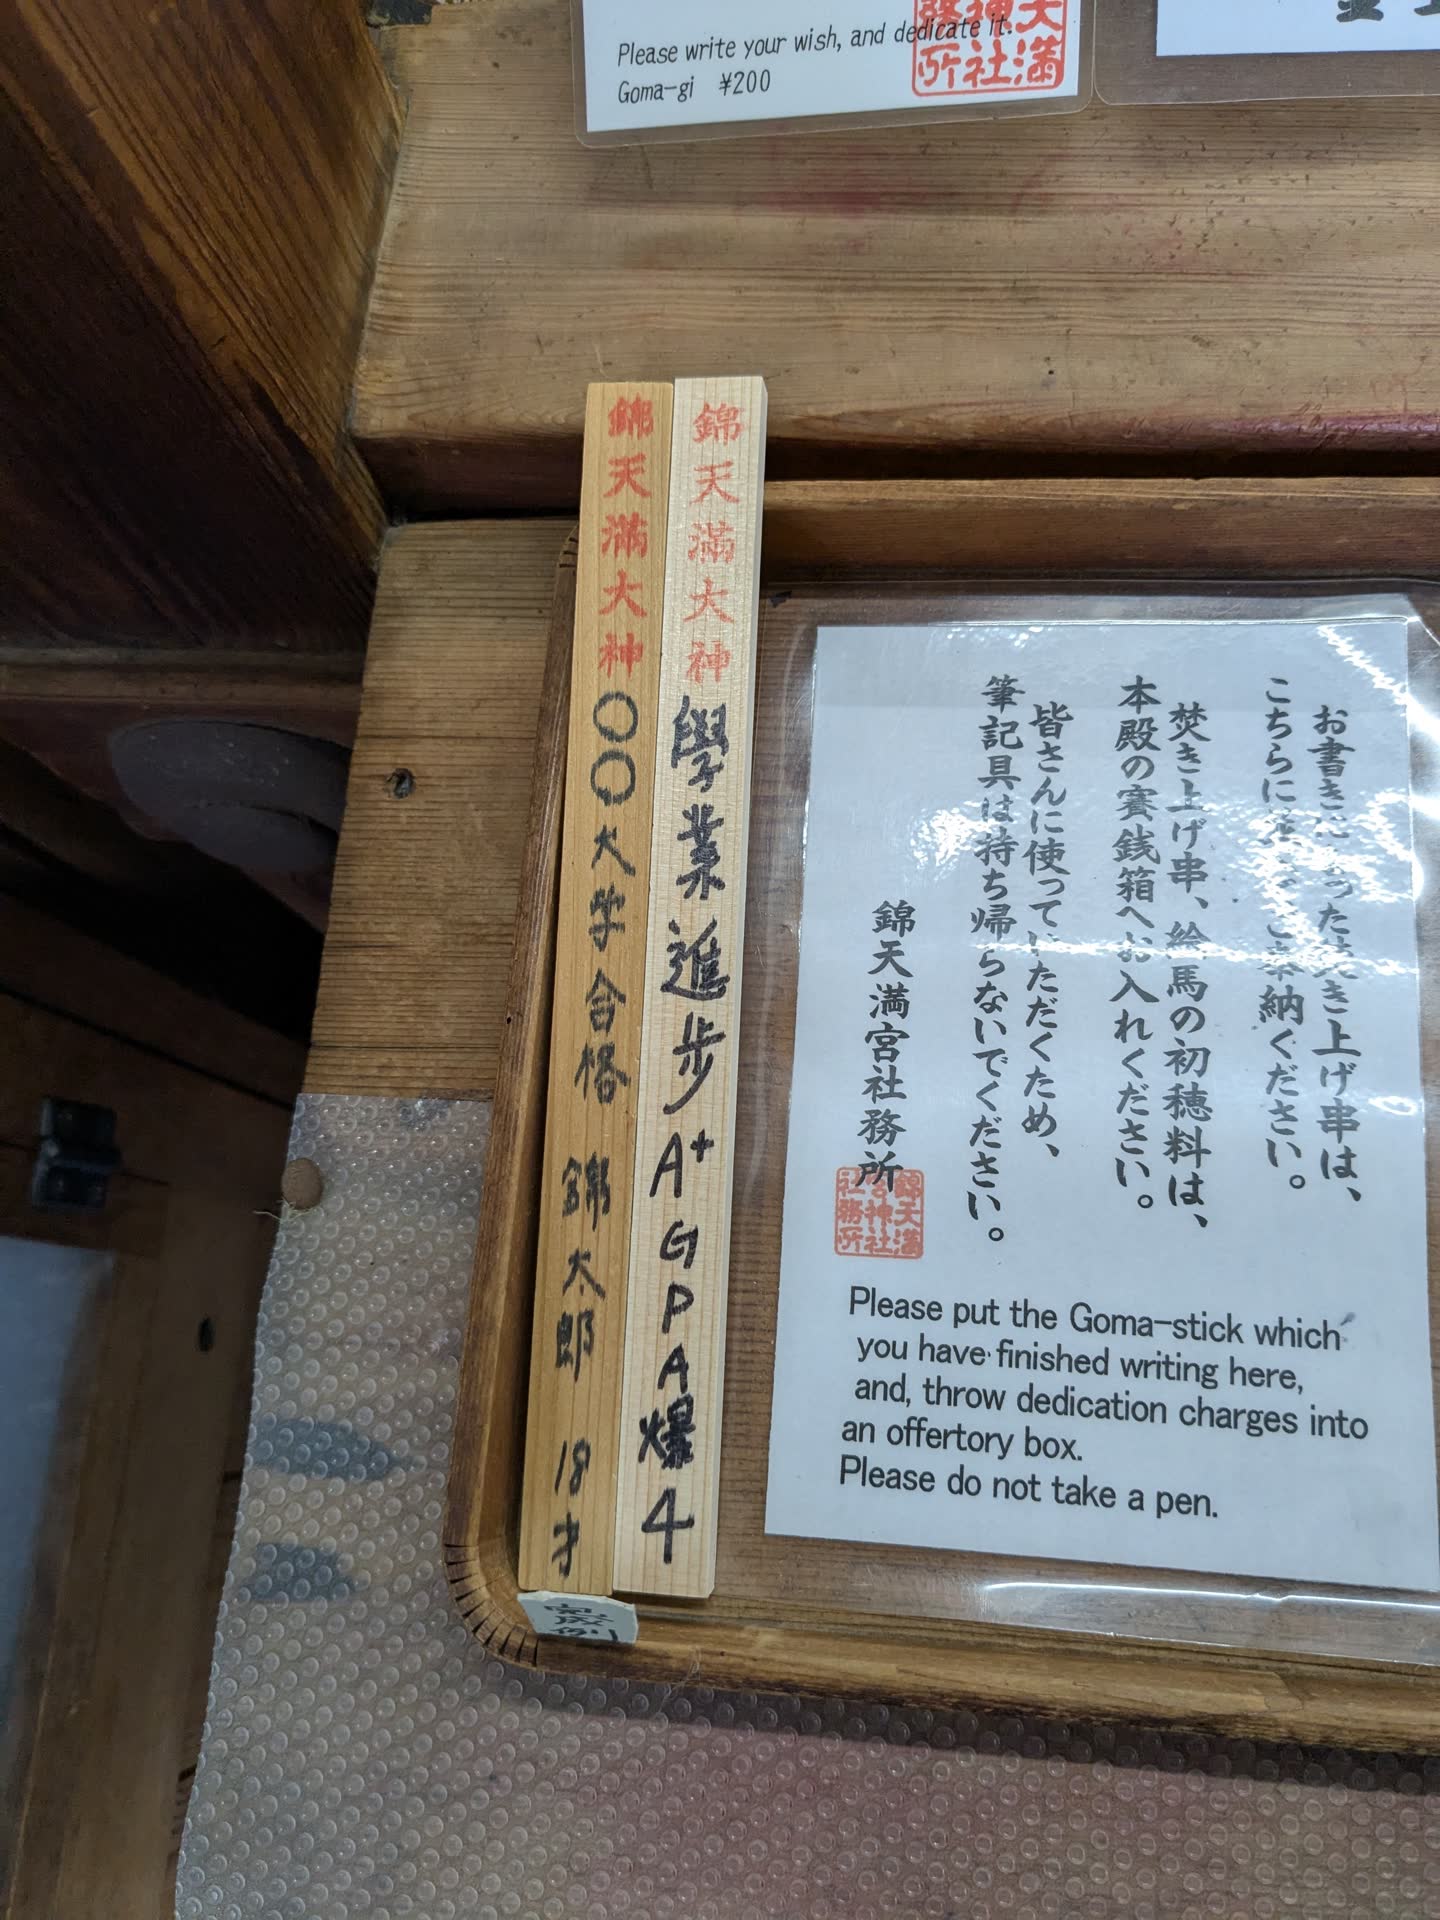 Please write your wish, and dedicate it.
Goma-gi ¥200
錦天満大神 〇〇大学合格 錦太郎 18才
錦天満大神 學業進步 A+ GPA爆4
記入例
お書きになった焚き上げ串は、
こちらに ご奉納ください。
焚き上げ串、絵馬の初穂料は、
本殿の賽銭箱へお入れください。
皆さんに使っていただくため、
筆記具は持ち帰らないでください。
錦天満宮社務所
錦天満宮神社社務所
Please put the Goma-stick which
you have finished writing here,
and, throw dedication charges into
an offertory box.
Please do not take a pen.